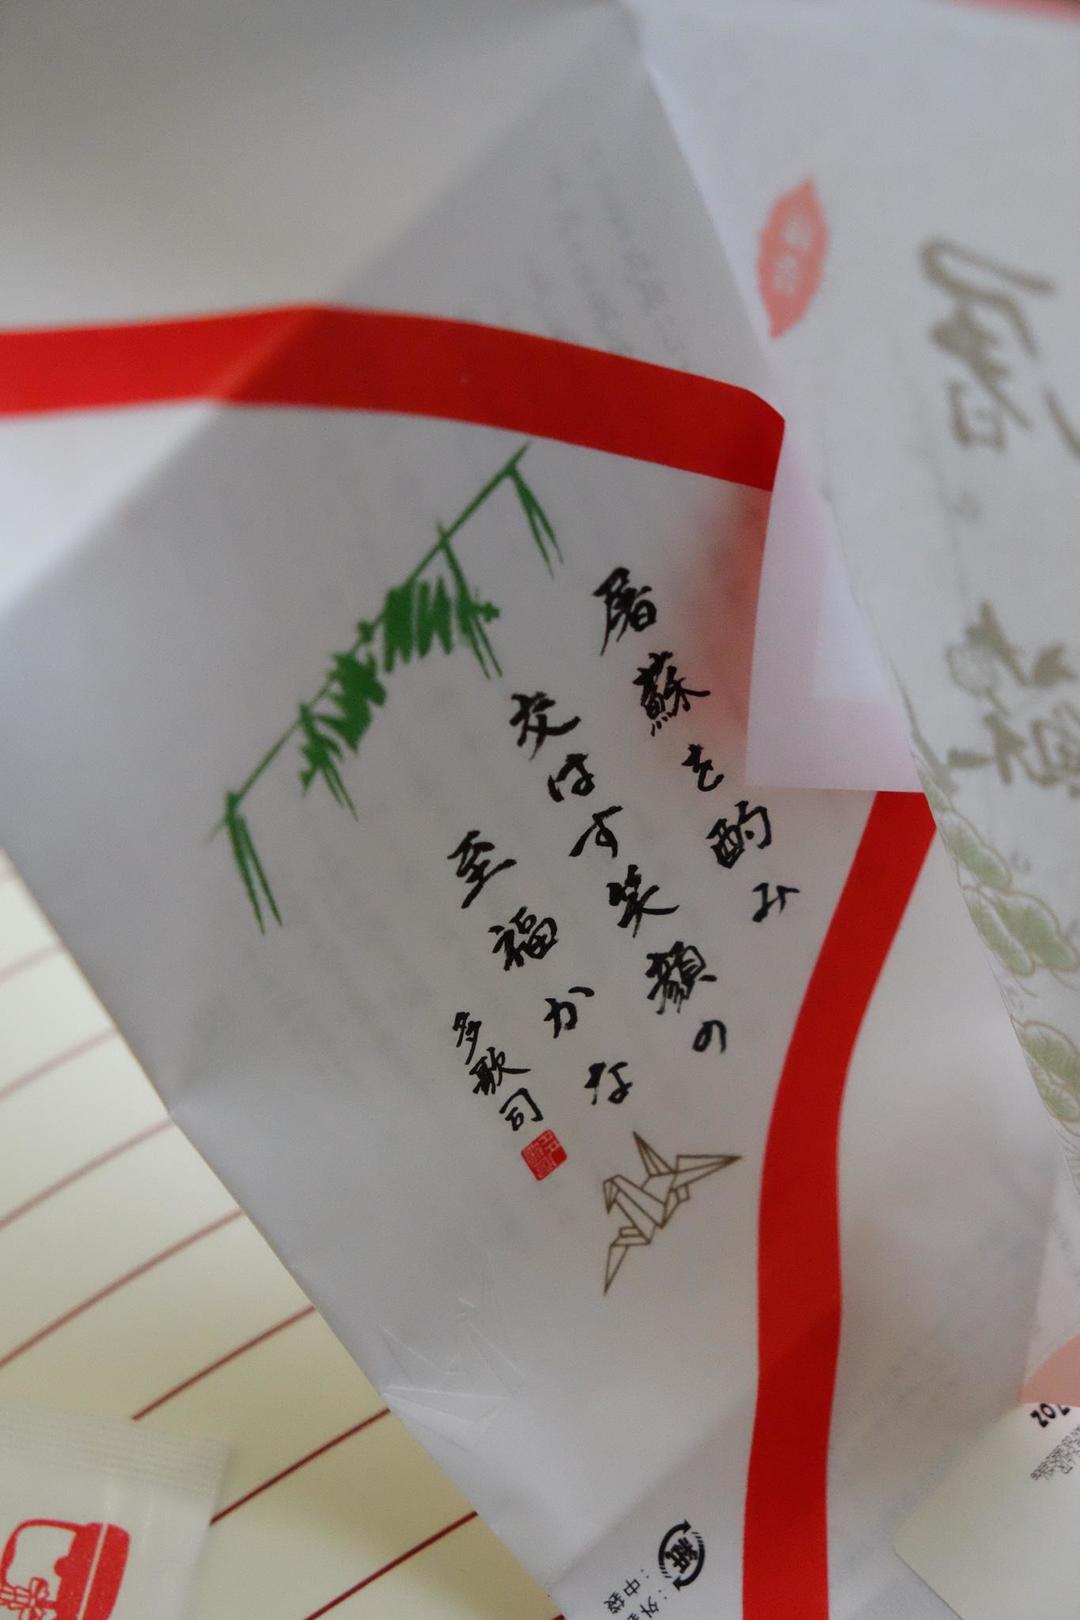 屠蘇を酌み
交はす笑顔の
至福かな
多歌司
紙
:外
:中袋
202